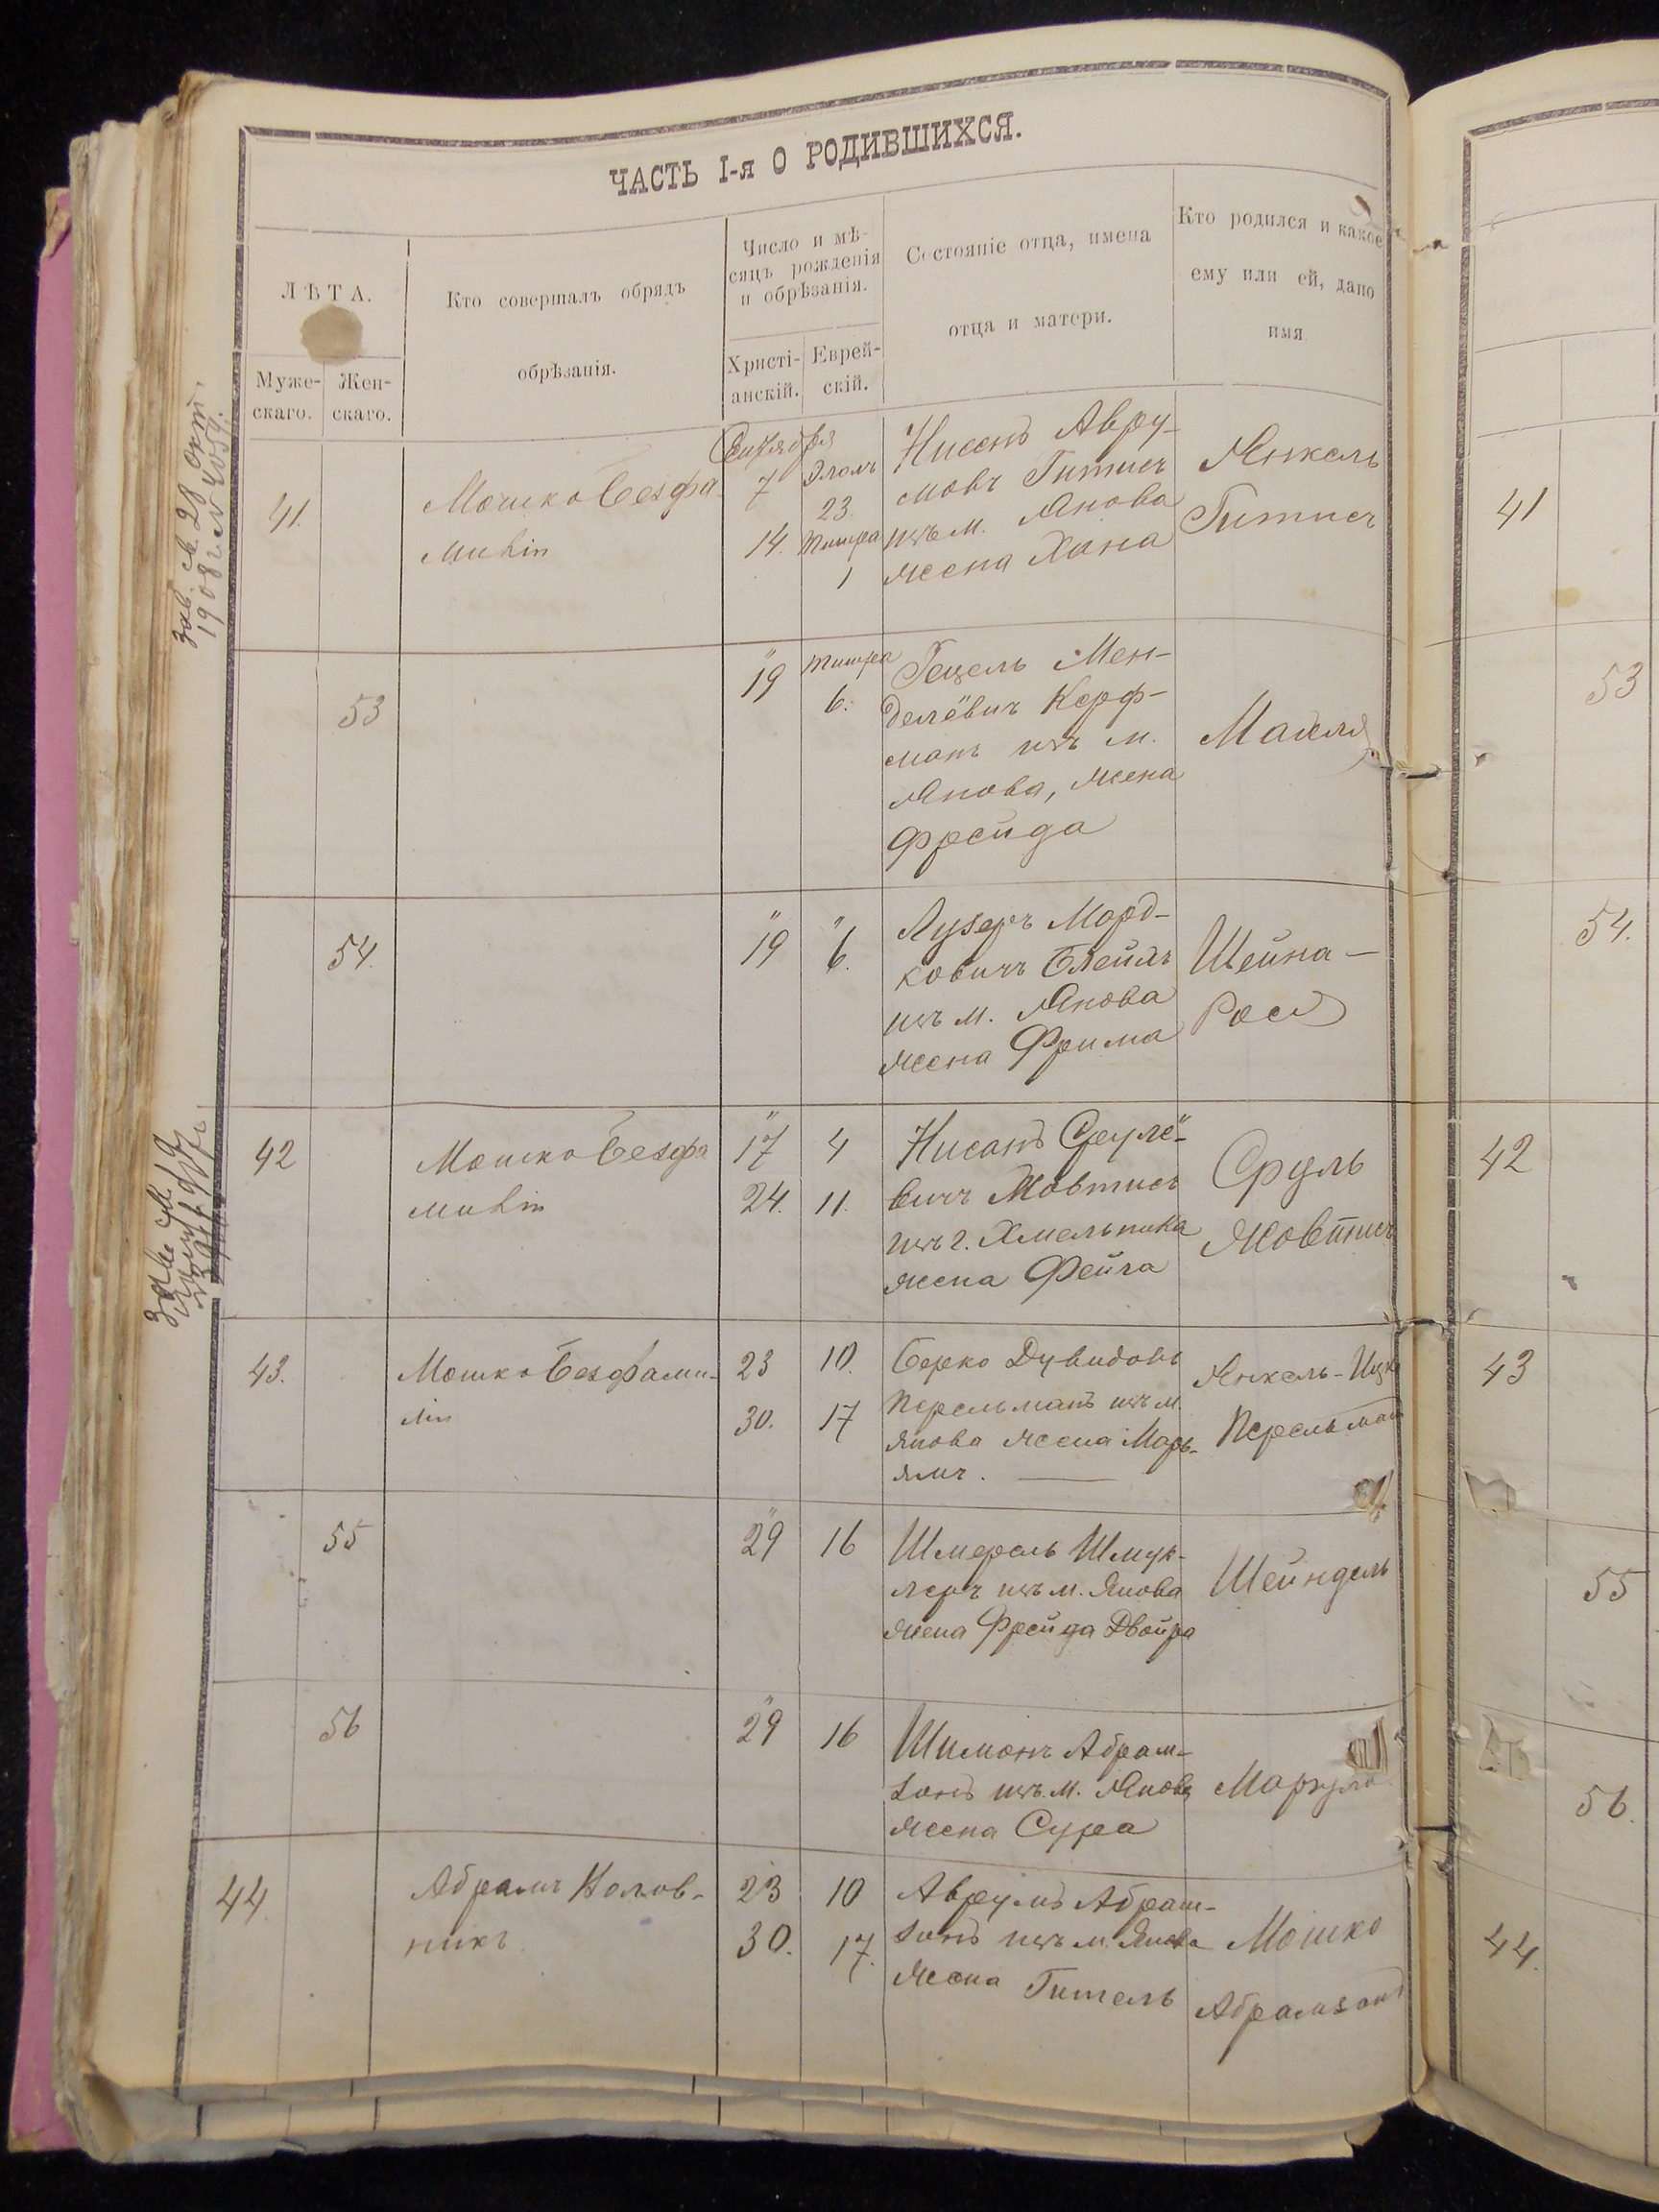 ЧАСТЬ I-я О РОДИВШИХСЯ.
ЛѢТА.
Муже-
скаго.
Жен-
скаго.
Кто совершалъ обрядъ
обрѣзанія.
Число и мѣ-
сяцъ рожденія
и обрѣзанія.
Христі-
анскій.
Еврей-
скій.
Состояніе отца, имена
отца и матери.
Кто родился и какое
ему или ей, дано
имя
41.
Мошко Безфа-
милін
Сентября
7
14.
Элолъ
23.
Тишра
1
Нисенъ Авру-
мовъ Гитисъ
изъ м. Янова
жена Хана
Янкель
Гитисъ
53
19
Тишра
6.
Гецель Мен-
делёвич Керф-
манъ изъ м.
Янова, жена
Фрейда
Малля
54.
" 19
" 6.
Лузеръ Морд-
ковичъ Блейлъ
изъ м. Янова
жена Фрима
Шейна-
42
Мошко Безфа
милін
" 17
24.
4
11.
Нисанъ Срулё-
вичъ Мовтисъ
изъ г. Хмельника
жена Фейга
Сруль
Мовтисъ
43.
Мошко Безфами-
лін
23
30.
10.
17
Берко Дувидовъ
Перельманъ изъ м.
Янова жена Марь-
ямъ.
Янкель-Ицко
Перельман
55
" 29
16
Шмерель Шмук-
леръ изъ м. Янова
жена Фрейда Двойра
Шейндель
56
" 29
16
Шимонъ Абрам-
зонъ изъ м. Янова
жена Сура
44.
Абрамъ Колов-
никъ
23
30.
10
17.
Аврумъ Абрам-
зонъ изъ м. Янова
жена Гитель
Мошко
Абрамзонъ
41
53
54.
42
43
55
56.
44.